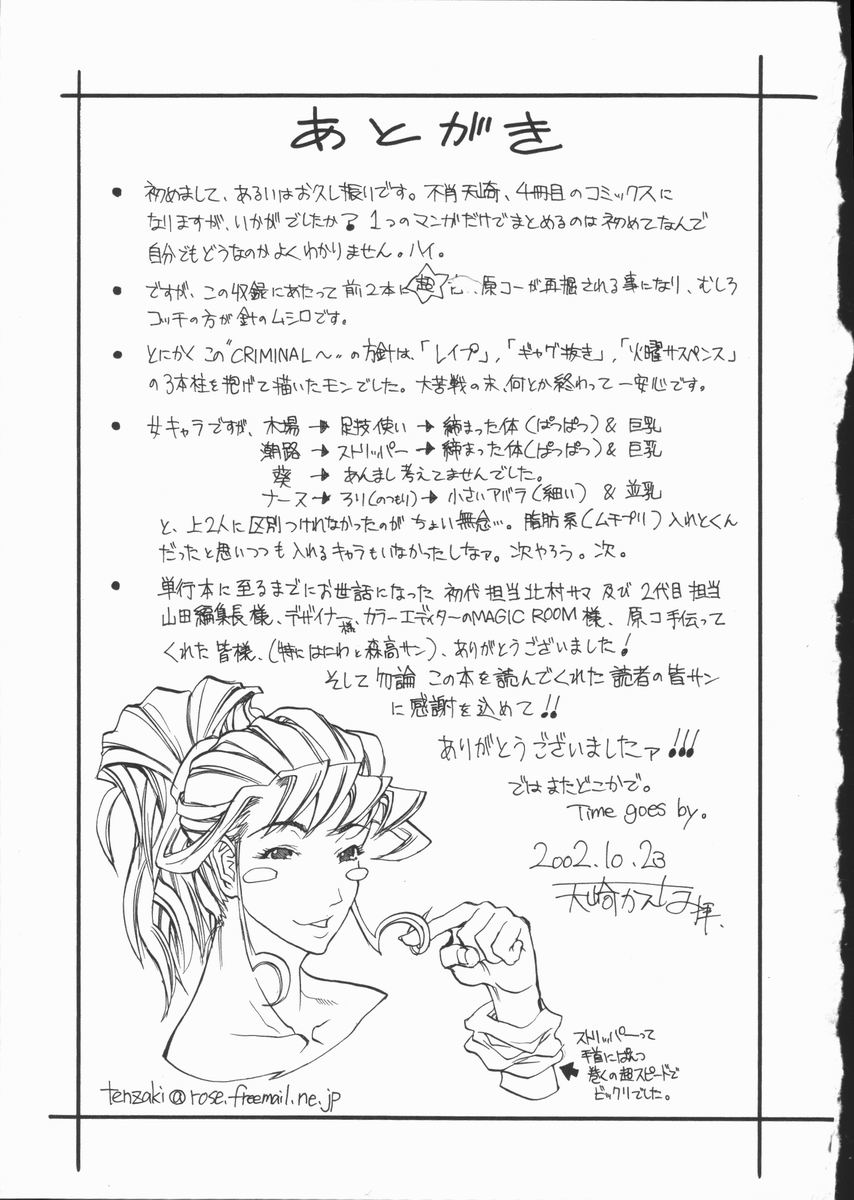 あとがき
● 初めまして、あるいはお久し振りです。不肖天崎、4冊目のコミックスに
なりますが、いかがでしたか? 1つのマンガだけでまとめるのは初めてなんで
自分でもどうなのかよくわかりません。ハイ。
● ですが、この収録にあたって前2本に超 原コーが再掘される事になり、むしろ
コッチの方が針のムシロです。
● とにかくこの"CRIMINAL～"の方針は、「レイプ」,「ギャグ抜き」,「火曜サスペンス」
の3本柱を掲げて描いたモンでした。大苦戦の末、何とか終わって一安心です。
● 女キャラですが、木場→足技使い→締まった体(ぱっぱつ)& 巨乳
潮路→ストリッパー→締まった体(ぱっぱつ)& 巨乳
葵→あんまし考えてませんでした。
ナース→ろり(のつもり)→小さいアバラ(細い) & 並乳
と、上2人に区別つけれなかったのがちょい無念…。脂肪系(ムチプリ)入れとくん
だったと思いつつも入れるキャラもいなかったしなァ。次やろう。次。
● 単行本に至るまでにお世話になった 初代担当北村サマ 及び 2代目担当
山田編集長様、デザイナー様、カラーエディターのMAGIC ROOM様、原コ手伝って
くれた皆様、(特にはにわと森高サン)、ありがとうございました!
そして勿論 この本を読んでくれた 読者の皆サン
に感謝を込めて!!
ありがとうございましたァ!!!
ではまたどこかで。
Time goes by.
2002.10.23
天崎かんな拝.
ストリッパーって
手首にぱんつ
巻くの超スピードで
ビックリでした。
tenzaki@rose.freemail.ne.jp